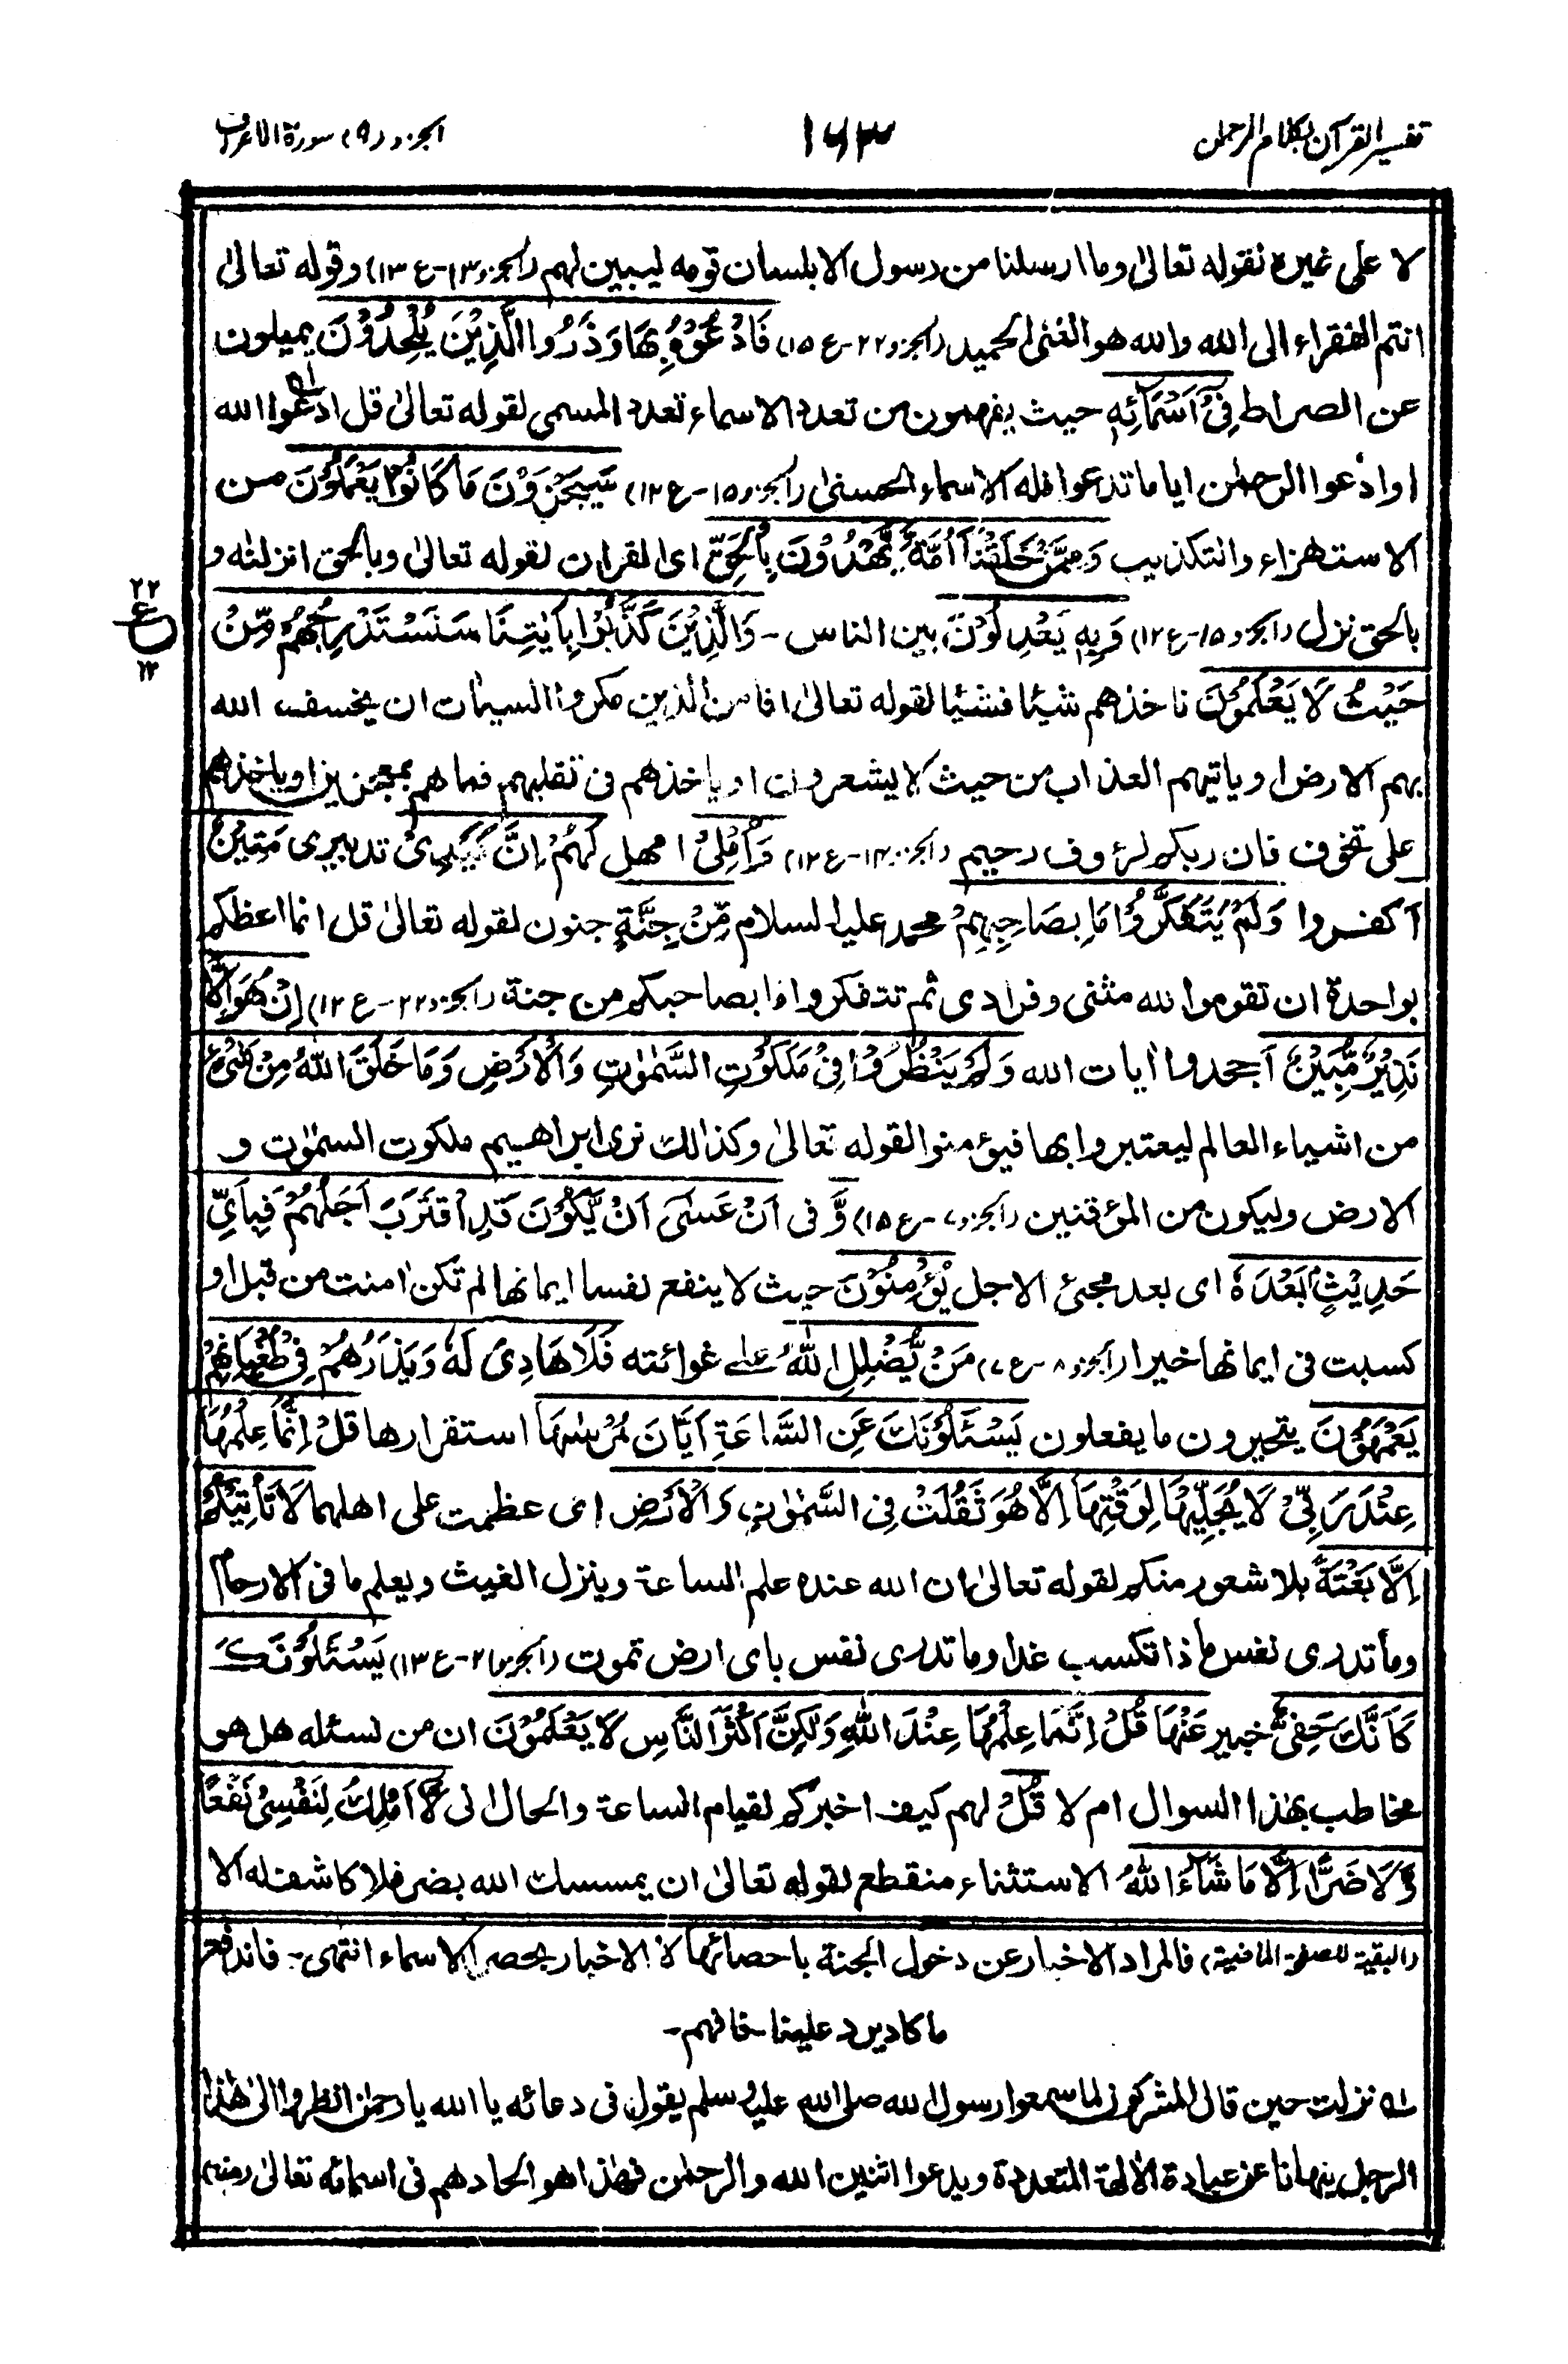 تفسير القرآن بكلام الرحمن
١٦٣
الجزء (٩) سورة الاعراف
لا على غيره لقوله تعالىٰ وما ارسلنا من رسول الا بلسان قومه ليبين لهم (الجزو ١٣-ع ١٣) وقوله تعالىٰ
انتم الفقراء الى الله والله هو الغنى الحميد (الجزو ٢٢-ع ١٥) فَادْعُوْهُ بِهَا وَذَرُوا الَّذِيْنَ يُلْحِدُوْنَ يميلون
عن الصراط فِيْٓ اَسْمَآئِهٖ حيث يفهمون من تعدد الاسماء تعدد المسمى لقوله تعالىٰ قل ادعوا الله
او ادعوا الرحمٰن اياما تدعوا فله الاسماء الحسنىٰ (الجزو ١٥-ع ١٢) سَيُجْزَوْنَ مَا كَانُوْا يَعْمَلُوْنَ من
الاستهزاء والتكذيب وَمِمَّنْ خَلَقْنَآ اُمَّةٌ يَّهْدُوْنَ بِالْحَقِّ اى القران لقوله تعالىٰ وبالحق انزلنٰه و
بالحق نزل (الجزو ١٥-ع ١٢) وَبِهٖ يَعْدِلُوْنَ بين الناس - وَالَّذِيْنَ كَذَّبُوْا بِاٰيٰتِنَا سَنَسْتَدْرِجُهُمْ مِّنْ
٢٢
ع
١٢
حَيْثُ لَا يَعْلَمُوْنَ ناخذهم شيئا فشيئا لقوله تعالىٰ افامن الذين مكروا السيئات ان يخسف الله
بهم الارض او ياتيهم العذاب من حيث لا يشعرون او ياخذهم فى تقلبهم فما هم بمعجزين او ياخذهم
على تخوف فان ربكم لرؤف رحيم (الجزو ١٤-ع ١٢) وَاُمْلِيْ امهل لَهُمْ اِنَّ كَيْدِىْ تدبيرى مَتِيْنٌ
اكفروا وَلَمْ يَتَفَكَّرُوْا مَا بِصَاحِبِهِمْ محمد عليه السلام مِّنْ جِنَّةٍ جنون لقوله تعالىٰ قل انما اعظكم
بواحدة ان تقوموا لله مثنى وفرادى ثم تتفكروا ما بصاحبكم من جنة (الجزو ٢٢-ع ١٢) اِنْ هُوَ اِلَّا
نَذِيْرٌ مُّبِيْنٌ اجحدوا اٰيات الله وَلَمْ يَنْظُرُوْا فِيْ مَلَكُوْتِ السَّمٰوٰتِ وَالْاَرْضِ وَمَا خَلَقَ اللهُ مِنْ شَيْءٍ
من اشياء العالم ليعتبروا بها فيؤمنوا لقوله تعالىٰ وكذالك نرى ابراهيم ملكوت السمٰوٰت و
الارض وليكون من المؤقنين (الجزو ٧-ع ١٥) وَّ فى اَنْ عَسٰٓى اَنْ يَّكُوْنَ قَدِ اقْتَرَبَ اَجَلُهُمْ فَبِاَيِّ
حَدِيْثٍ بَعْدَهٗ اى بعد مجئ الاجل يُؤْمِنُوْنَ حيث لا ينفع نفسا ايمانها لم تكن اٰمنت من قبل او
كسبت فى ايمانها خيرا (الجزو ٨-ع ٧) مَنْ يُّضْلِلِ اللهُ علے غوائته فَلَا هَادِىَ لَهٗ وَيَذَرُهُمْ فِيْ طُغْيَانِهِمْ
يَعْمَهُوْنَ يتحيرون ما يفعلون يَسْئَلُوْنَكَ عَنِ السَّاعَةِ اَيَّانَ مُرْسٰىهَا استقرارها قُلْ اِنَّمَا عِلْمُهَا
عِنْدَ رَبِّيْ لَا يُجَلِّيْهَا لِوَقْتِهَآ اِلَّا هُوَ ثَقُلَتْ فِى السَّمٰوٰتِ وَالْاَرْضِ اى عظمت على اهلهما لَا تَاْتِيْكُمْ
اِلَّا بَغْتَةً بلا شعور منكم لقوله تعالىٰ ان الله عنده علم الساعة وينزل الغيث ويعلم ما فى الارحام
وما تدرى نفس ماذا تكسب غدا وما تدرى نفس باى ارض تموت (الجزو ٢١-ع ١٣) يَسْئَلُوْنَكَ
كَاَنَّكَ حَفِيٌّ خبير عَنْهَا قُلْ اِنَّمَا عِلْمُهَا عِنْدَ اللهِ وَلٰكِنَّ اَكْثَرَ النَّاسِ لَا يَعْلَمُوْنَ ان من نسئله هل هو
مخاطب بهٰذا السوال ام لا قُلْ لهم كيف اخبركم لقيام الساعة والحال انى لَّآ اَمْلِكُ لِنَفْسِيْ نَفْعًا
وَّلَا ضَرًّا اِلَّا مَا شَآءَ اللهُ الاستثناء منقطع لقوله تعالىٰ ان يمسسك الله بضر فلا كاشف له الا
(البقية للصفحة الماضية) فالمراد الاخبار عن دخول الجنة باحصائها لا الاخبار بحصر الاسماء انتهى - فاندفع
ما كاد يرد علينا - فافهم -
لہ نزلت حين قال المشركون لما سمعوا رسول الله صلى الله عليه وسلم يقول فى دعائه يا الله يا رحمٰن انظروا الىٰ هٰذا
الرجل ينهانا عن عبادة الاٰلهة المتعددة ويدعوا اثنين الله والرحمٰن فهٰذا هو الحادهم فى اسمائه تعالىٰ (منه)